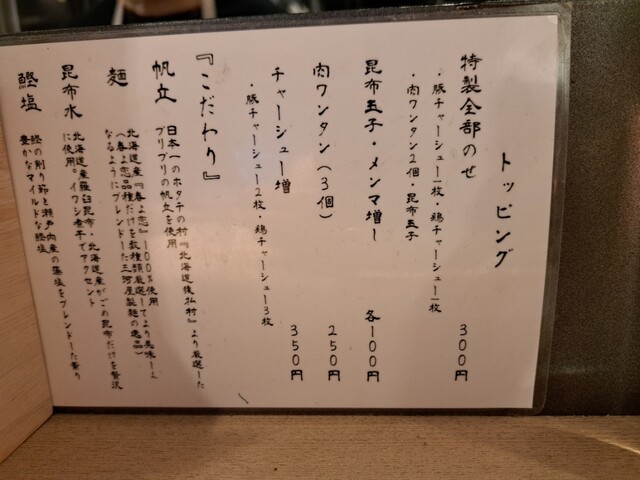 トッピング
特製全部のせ 300円
・豚チャーシュー1枚・鶏チャーシュー1枚
・肉ワンタン2個・昆布玉子
昆布玉子・メンマ増し 各100円
肉ワンタン(3個) 250円
チャーシュー増 350円
・豚チャーシュー2枚・鶏チャーシュー3枚
『こだわり』
帆立 日本一のホタテの村『北海道猿払村』より厳選した
プリプリの帆立を使用
麺 北海道産『春よ恋』100%使用
(春よ恋品種だけを数種類厳選してより美味しく
なるようにブレンドした三河屋製麺の逸品)
昆布水 北海道産羅臼昆布・北海道産がごめ昆布だけを贅沢
に使用。イワシ煮干でアクセント
鰹塩 鰹の削り節と瀬戸内産の藻塩をブレンドした香り
豊かなマイルドな鰹塩